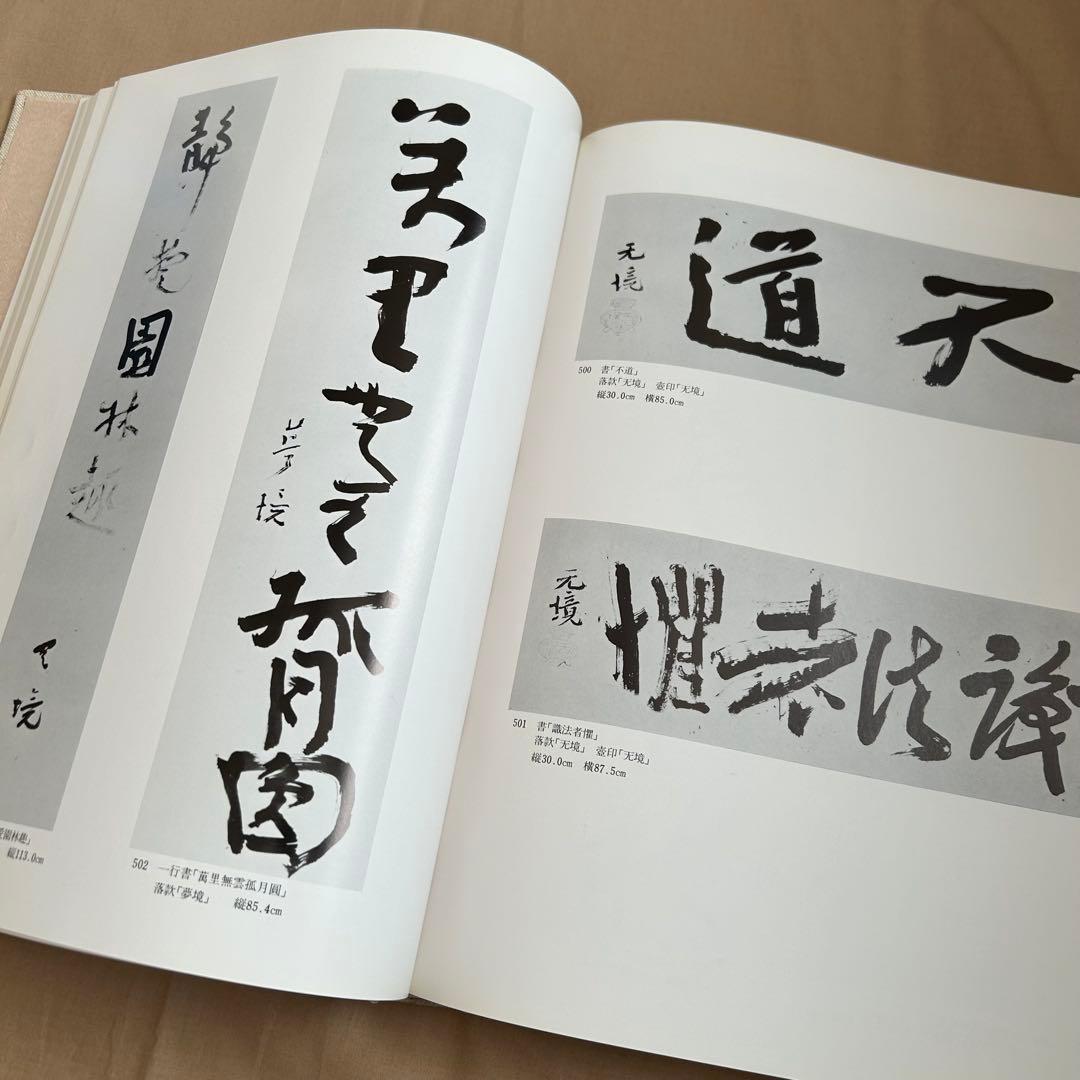 不道
无境
500 書「不道」
落款「无境」 壺印「无境」
縦30.0cm 横85.0cm
識法者懼
无境
501 書「識法者懼」
落款「无境」 壺印「无境」
縦30.0cm 横87.5cm
萬里無雲孤月圓
夢境
502 一行書「萬里無雲孤月圓」
落款「夢境」 縦85.4cm
靜愛園林趣
无境
愛園林趣」
縦113.0cm